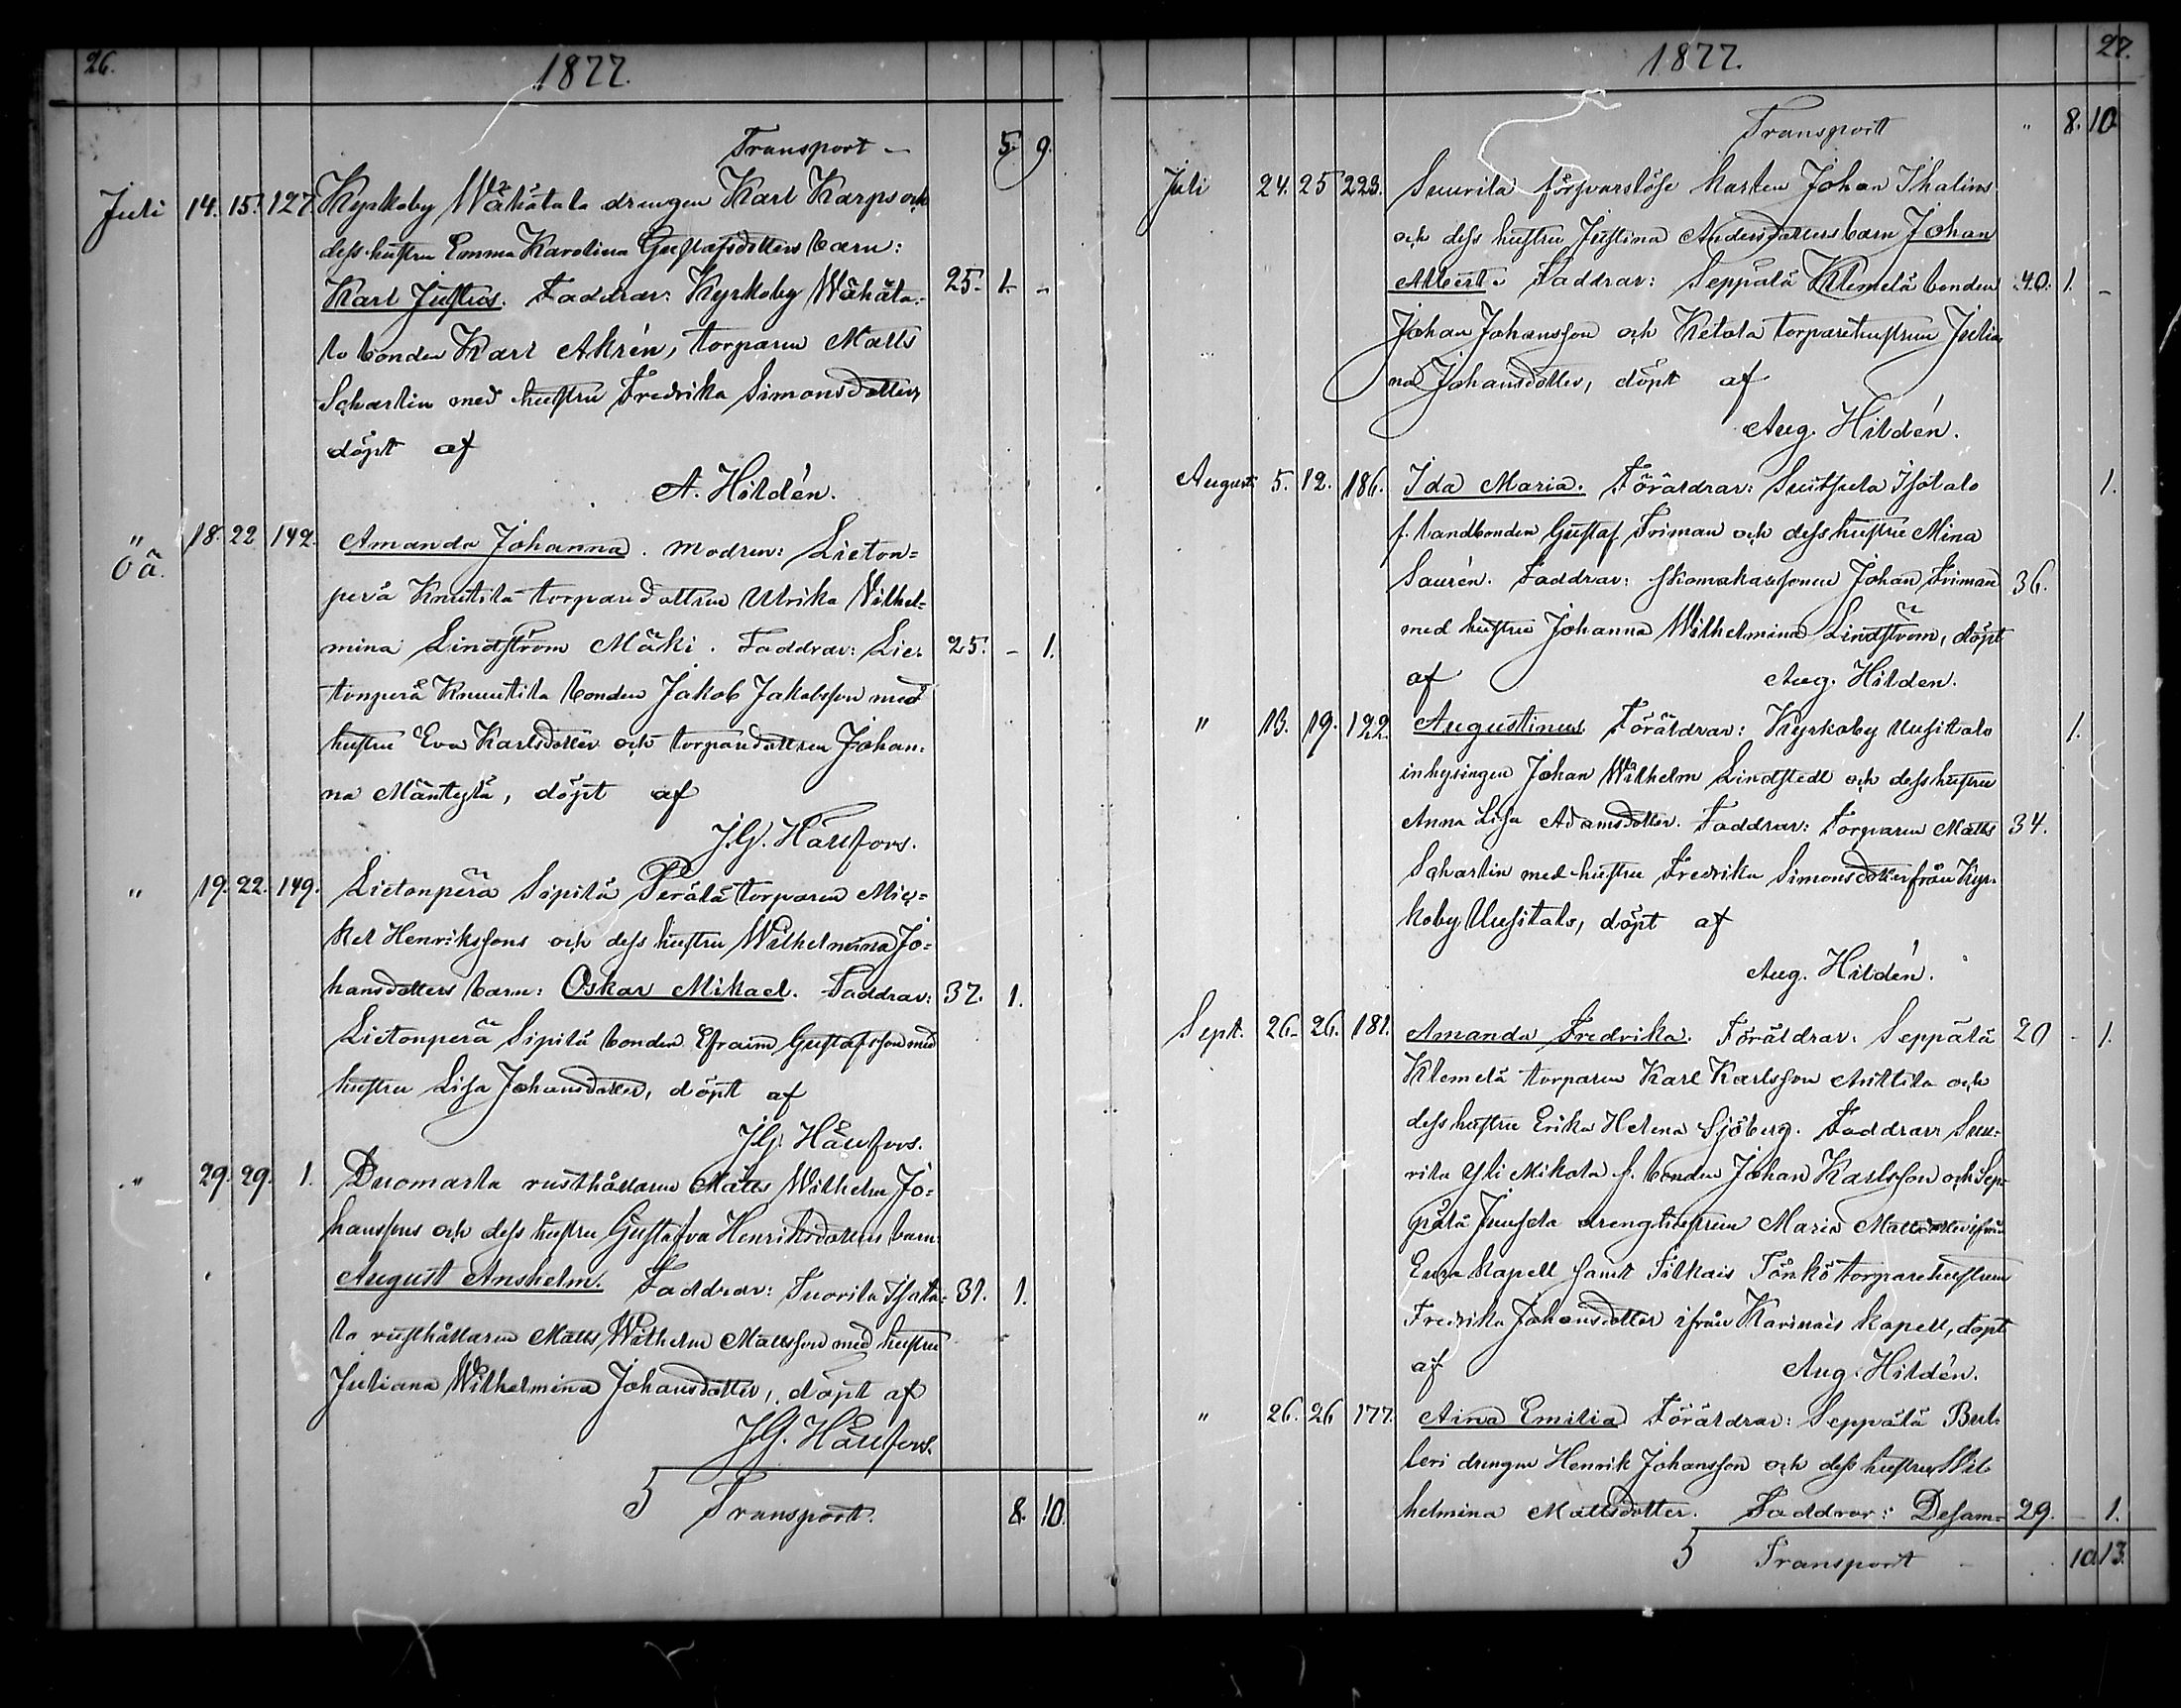 26.
1877.
Transport — 5. 9.
Juli 14. 15. 127. Kyrkoby Wähätalo drengen Karl Karps och
dess hustru Emma Karolina Gustafsdotters barn:
Karl Justus. Faddrar: Kyrkoby Wähäta- 25. 1. –
lo bonden Karl Ahrén, torparen Matts
Schartin med hustru Fredrika Simonsdotter,
döpt af
A. Hildén.
" 18. 22. 142. Amanda Johanna. Modren: Lieton=
Oä.
perä Knuutila torparedottren Ulrika Vilhel=
mina Lindström Mäki. Faddrar: Lie- 25. – 1.
tonperä Knuutila bonden Jakob Jakobsson med
hustru Eva Karlsdotter och torparedottren Johan-
na Mäntylä, döpt af
J.G. Häufors.
" 19. 22. 149. Lietonperä Sipilä Perälä torparen Mic-
kel Henrikssons och dess hustru Wilhelmina Jo=
hansdotters barn: Oskar Mikael. Faddrar: 37. 1.
Lietonperä Sipilä bonden Efraim Gustafsson med
hustru Lisa Johansdotter, döpt af
J.G. Häufors.
" 29. 29. 1. Duomarla rusthållaren Matts Wilhelm Jo=
hanssons och dess hustru Gustafva Henriksdotters barn:
August Anshelm. Faddrar: Suorila Isota- 31. 1.
lo rusthållaren Matts Wilhelm Mattsson med hustru
Juliana Wilhelmina Johansdotter, döpt af
J.G. Häufors.
5 Transport. 8. 10.
27.
1877.
Transport " 8. 10
Juli 24. 25 223. Suurila försvarslöse karlen Johan Thalins
och dess hustru Justina Andersdotters barn Johan
Albert. Faddrar: Seppälä Klemelä bonden 40. 1. –
Johan Johansson och Ketola torparehustrun Julia
na Johansdotter, döpt af
Aug. Hildén.
Augusti 5. 12. 186. Ida Maria. Föräldrar: Isotalo 1.
f. landbonden Gustaf Friman och dess hustru Mina
Saurén. Faddrar: Skomakaresonen Johan Friman 36.
med hustru Johanna Wilhelmina Lindström, döpt
af Aug. Hildén.
" 13. 19. 122. Augustinus. Föräldrar: Kyrkoby Uusitalo 1.
inhysingen Johan Wilhelm Lindstedt och dess hustru
Anna Lisa Adamsdotter. Faddrar: Torparen Matts 34.
Schartin med hustru Fredrika Simonsdotter från Kyr-
koby Uusitalo, döpt af
Aug. Hildén.
Sept. 26. 26. 181. Amanda Fredrika. Föräldrar: Seppälä 20 – 1.
Klemelä torparen Karl Karlsson Anttila och
dess hustru Erika Helena Sjöberg. Faddrar: Suu-
rila Yli Mikola f. bonden Johan Karlsson och Sep-
pälä Juusela drenghustrun Maria Mattsdotter ifrån
Eura Kapell samt Silkais Tönkö torparehustrun
Fredrika Johansdotter ifrån Karinais kapell, döpt
af Aug. Hildén.
" 26. 26 177. Aina Emilia Föräldrar: Seppälä But-
leri drengen Henrik Johansson och dess hustru Wil
helmina Mattsdotter. Faddrar: Desam= 29. – 1.
5 Transport – 10 13.